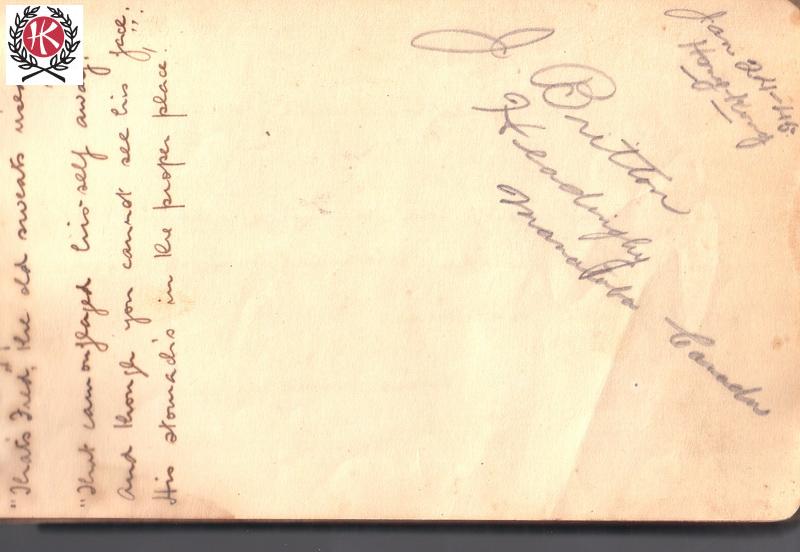 "That's Fred, the old sweats use
"That camouflaged his-self away,
And though you cannot see his face,
His stomach's in the proper place".
Jan 24-45
Hong Kong
J Britton
Headingly
Manitoba Canada
HK